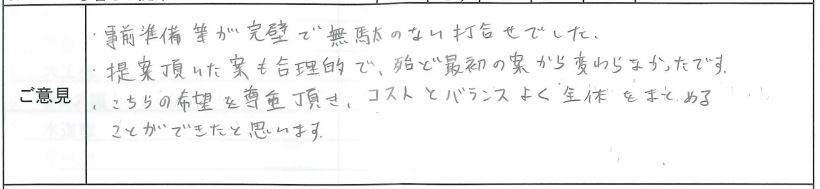 ご意見
・事前準備等が完璧で無駄のない打合せでした。
・提案頂いた案も合理的で、殆ど最初の案から変わらなかったです。
・こちらの希望を尊重頂き、コストとバランスよく全体をまとめる
ことができたと思います。